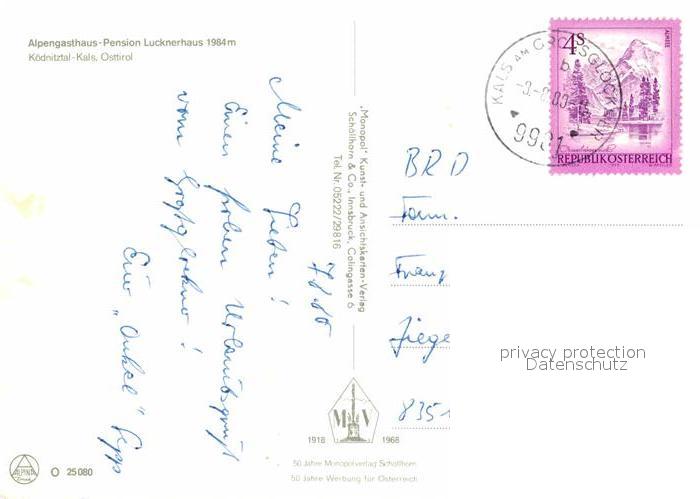 Alpengasthaus-Pension Lucknerhaus 1984m
Ködnitztal-Kals, Osttirol
Meine Lieben!
Einen frohen Urlaubsgruß
vom Großglockner!
Euer "Onkel" Sepp
„Monopol" Kunst- und Ansichtskarten-Verlag
Schöllhorn & Co., Innsbruck, Colingasse 6
Tel. Nr. 05222/29816
KALS AM GROSSGLOCKNER
b
9981
4 S
ALMSEE
REPUBLIK ÖSTERREICH
BRD
Fam.
Franz
8351
privacy protection
Datenschutz
M V
1918 1968
50 Jahre Monopolverlag Schöllhorn
50 Jahre Werbung für Österreich
ALPINA
Druck
O 25080